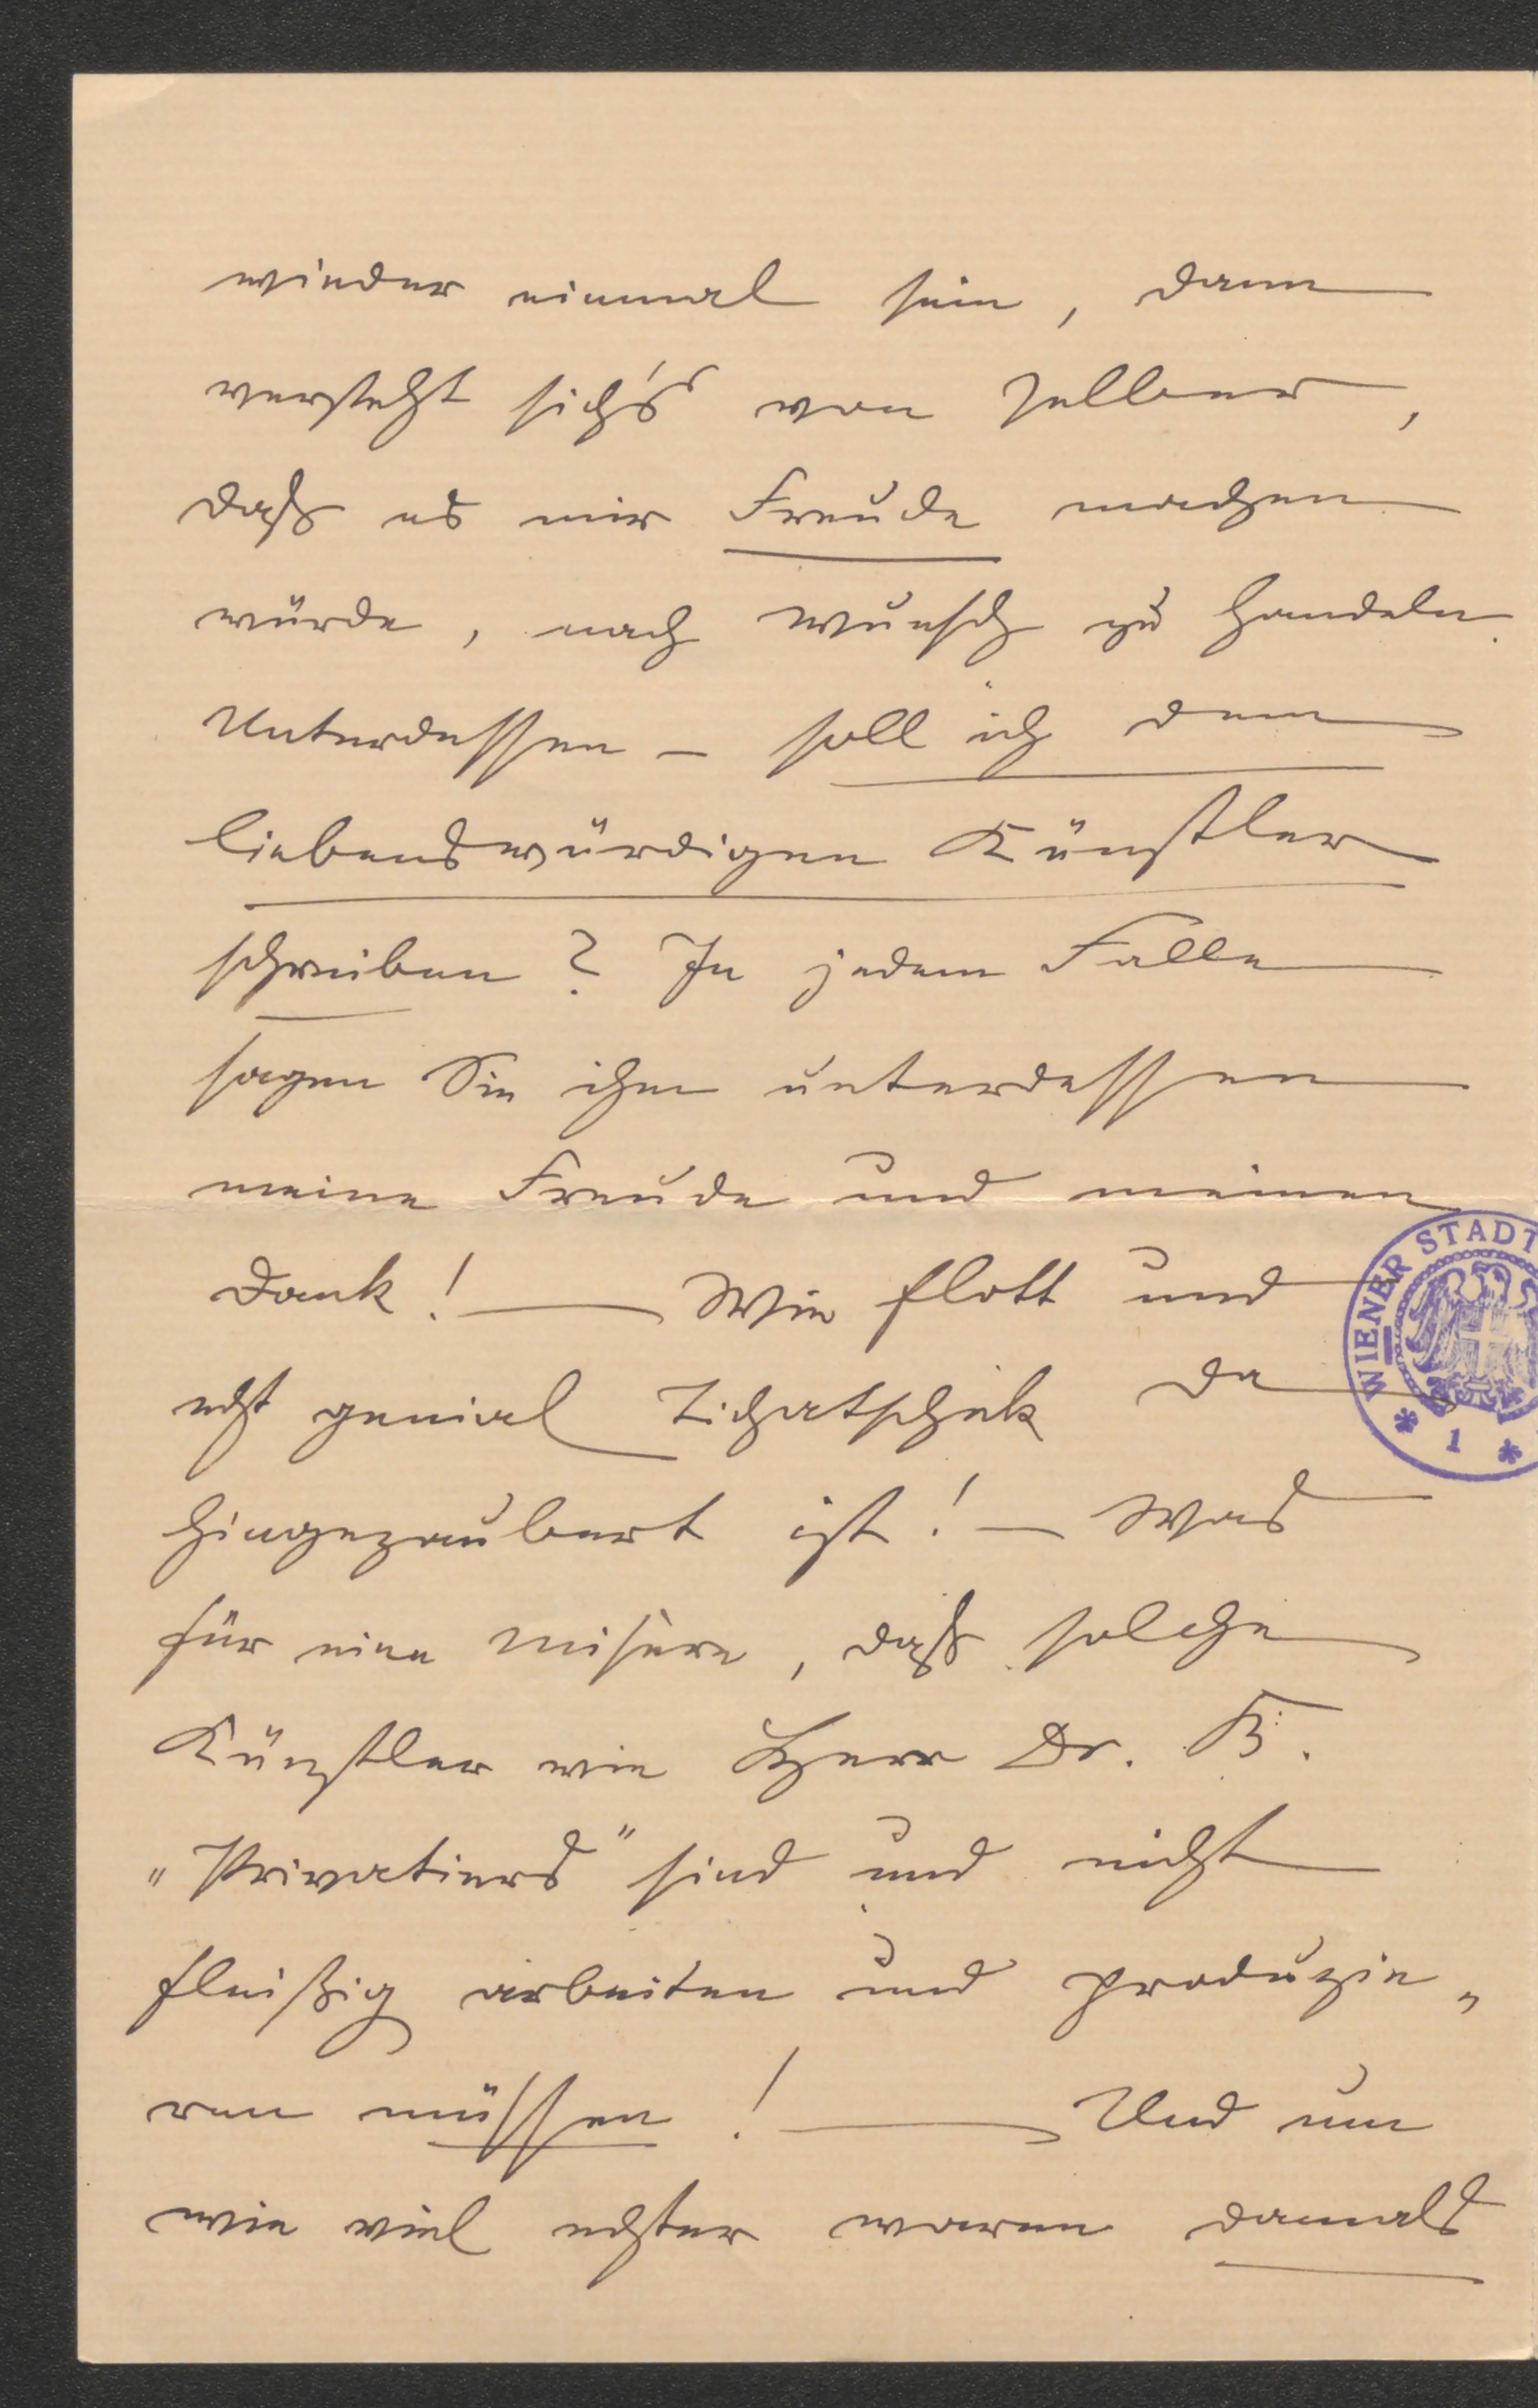 wieder einmal sein, dann
versteht sich's von selber,
daß es mir Freude machen
würde, nach Wunsch zu handeln.
Unterdessen – soll ich dem
liebenswürdigen Künstler
schreiben? In jedem Falle
sagen Sie ihm unterdessen
meine Freude und meinen
Dank! — Wie flott und
echt genial Tichatschek da
hingezaubert ist! – Was
für eine Misère, daß solche
Künstler wie Herr Dr. K.
„Privatiers" sind und nicht
fleißig arbeiten und produzie„
ren müssen! — Und um
wie viel echter waren damals
WIENER STADT
* 1 *